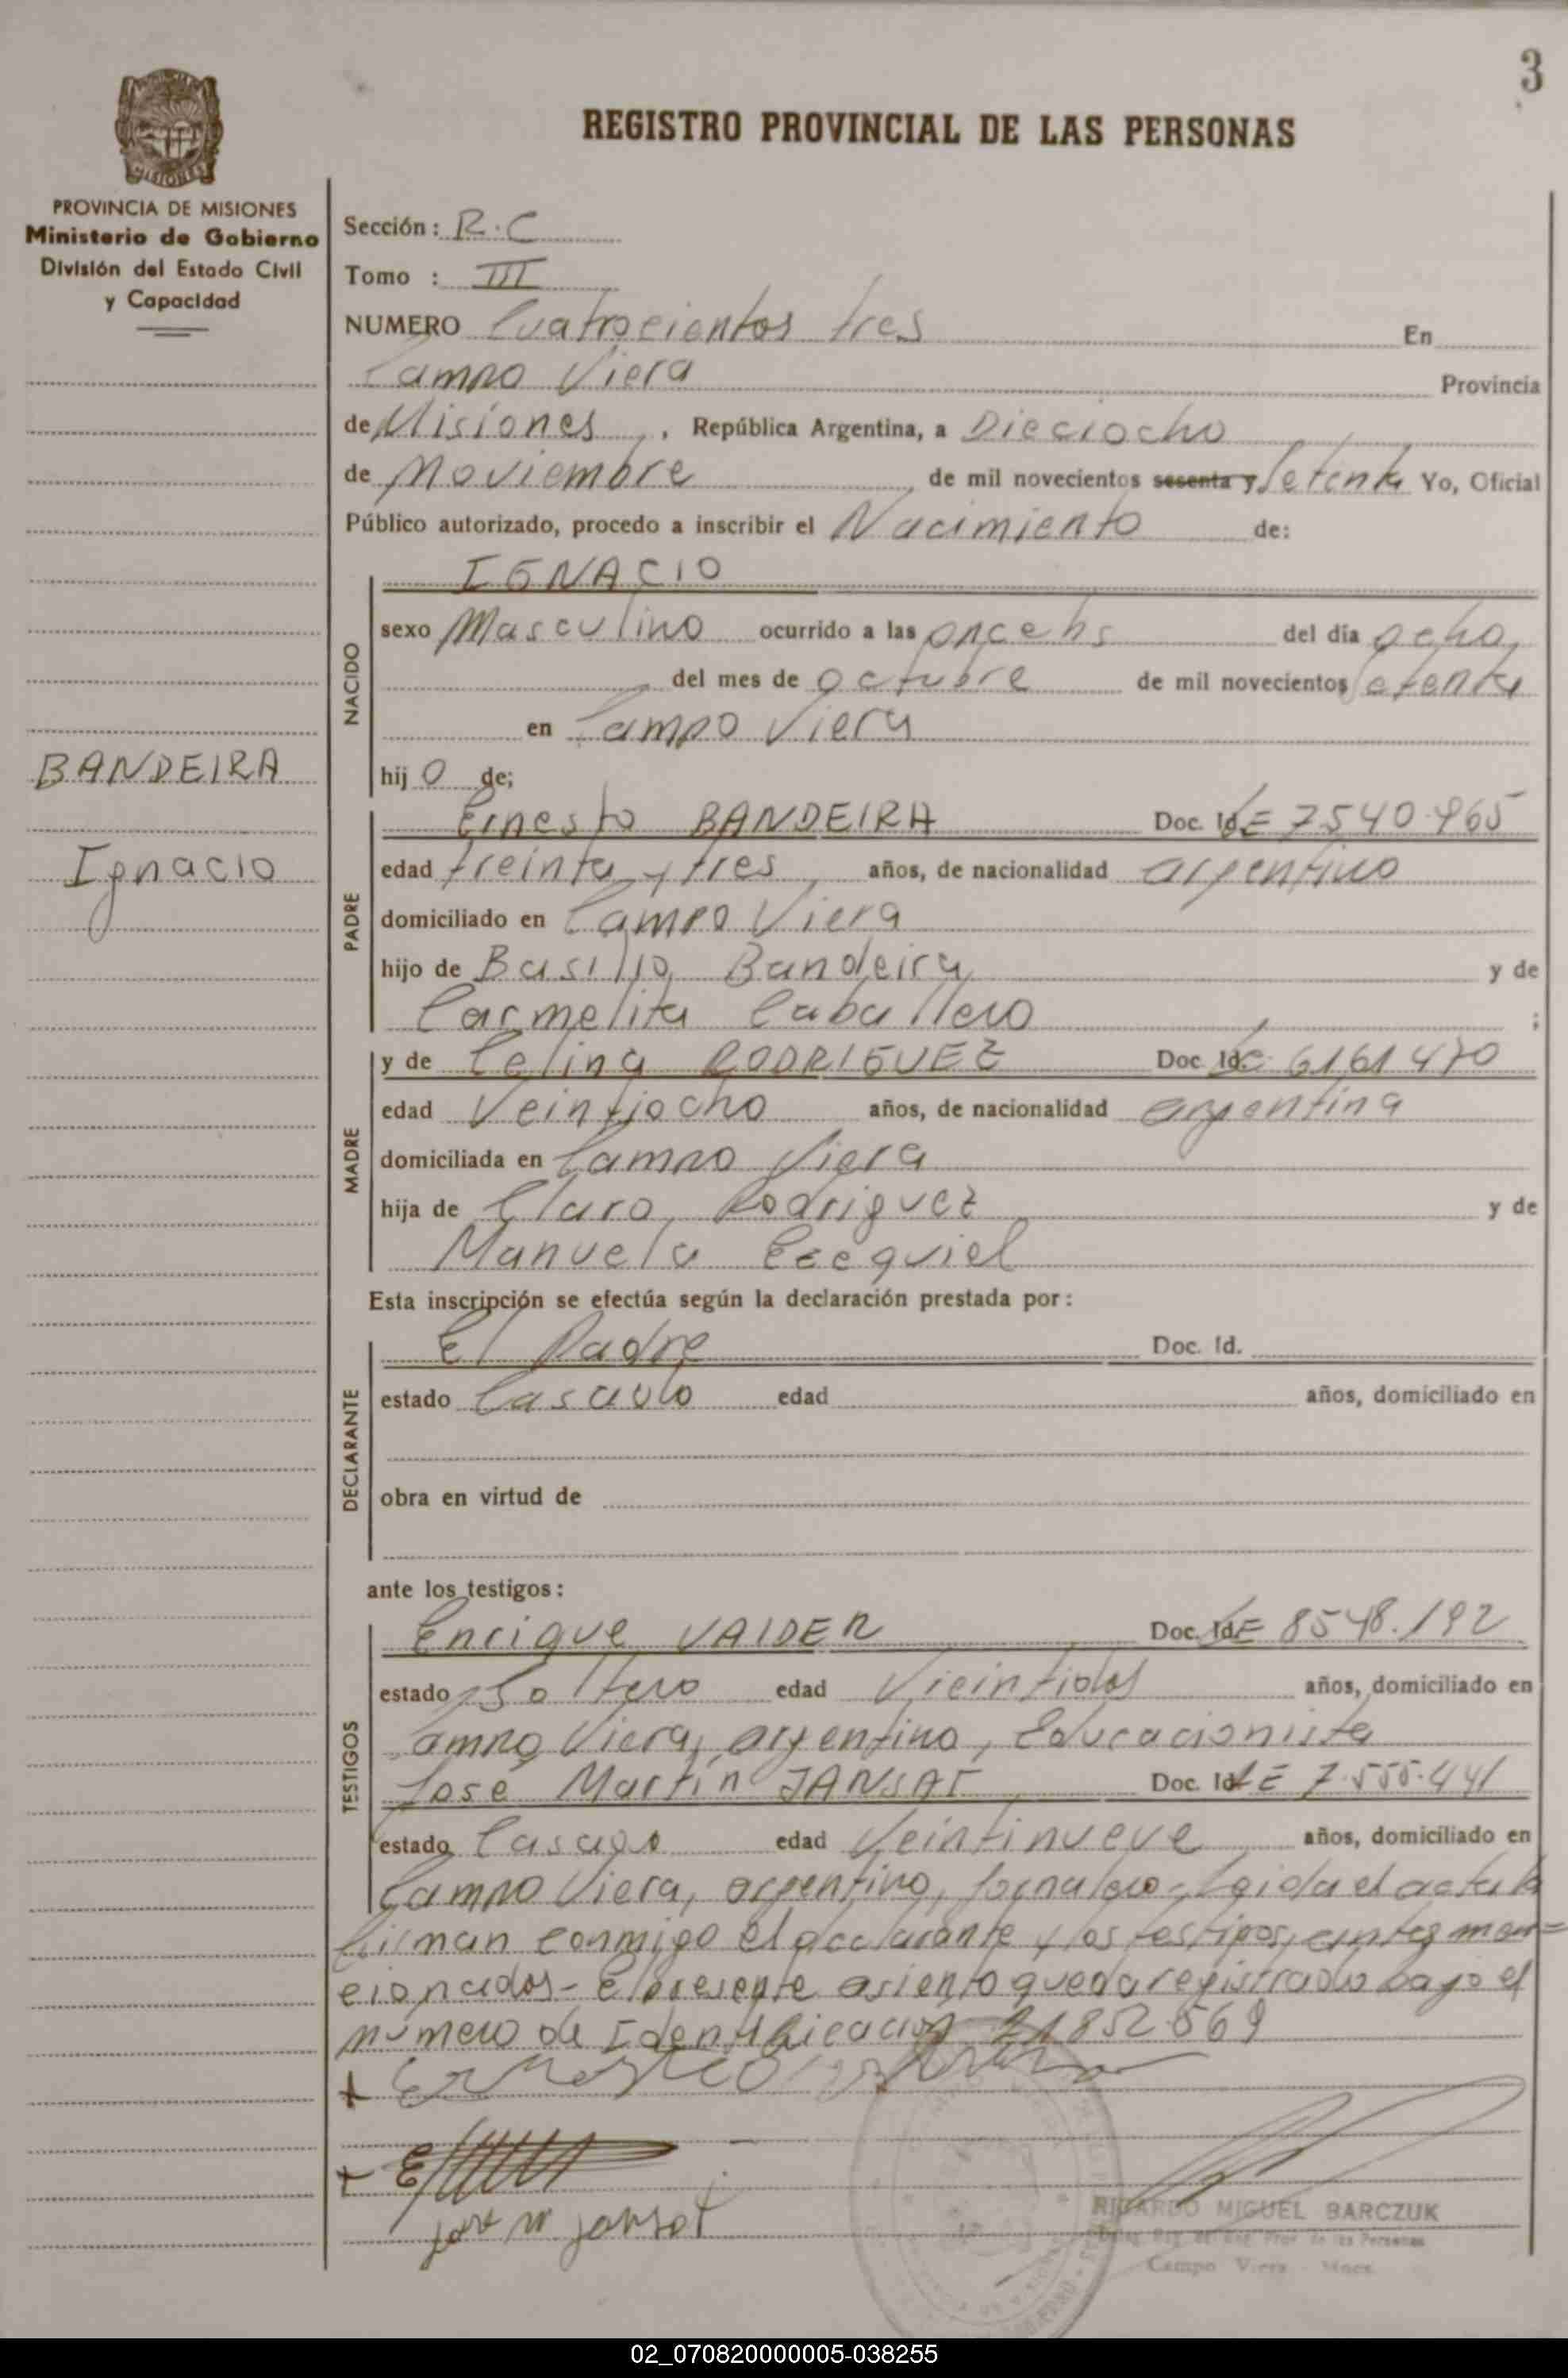 3
REGISTRO PROVINCIAL DE LAS PERSONAS
MISIONES
PROVINCIA DE MISIONES
Ministerio de Gobierno
División del Estado Civil
y Capacidad
BANDEIRA
Ignacio
Sección: R.C
Tomo : III
NUMERO Cuatrocientos tres En
Campo Viera Provincia
de Misiones, República Argentina, a Dieciocho
de Noviembre de mil novecientos sesenta y Setenta Yo, Oficial
Público autorizado, procedo a inscribir el Nacimiento de:
NACIDO
IGNACIO
sexo Masculino ocurrido a las once hs del día ocho
del mes de octubre de mil novecientos Setenta
en Campo Viera
hijo de;
PADRE
Ernesto BANDEIRA Doc. Id. LE 7540.965
edad treinta y tres años, de nacionalidad argentino
domiciliado en Campo Viera
hijo de Basilio Bandeira y de
Carmelita Caballero ;
MADRE
y de Celina RODRIGUEZ Doc. Id. LC 6161470
edad Veintiocho años, de nacionalidad argentina
domiciliada en Campo Viera
hija de Claro Rodriguez y de
Manuela Ezequiel
Esta inscripción se efectúa según la declaración prestada por:
DECLARANTE
El Padre Doc. Id.
estado Casado edad años, domiciliado en
obra en virtud de
ante los testigos:
TESTIGOS
Enrique VAIDER Doc. Id. LE 8548.192
estado Soltero edad Vieintidos años, domiciliado en
Campo Viera, argentino, Educacionista
José Martín JANSAT Doc. Id. LE 7.555.441
estado Casado edad Veintinueve años, domiciliado en
Campo Viera, argentino, Jornalero - Leida el acta la
firman conmigo el declarante y los testigos, antes men=
cionados - El presente asiento queda registrado bajo el
número de Identificacion 21852.569
José M Jansat
RICARDO MIGUEL BARCZUK
Reg. Prov. de las Personas
Campo Viera - Mnes.
02_070820000005-038255